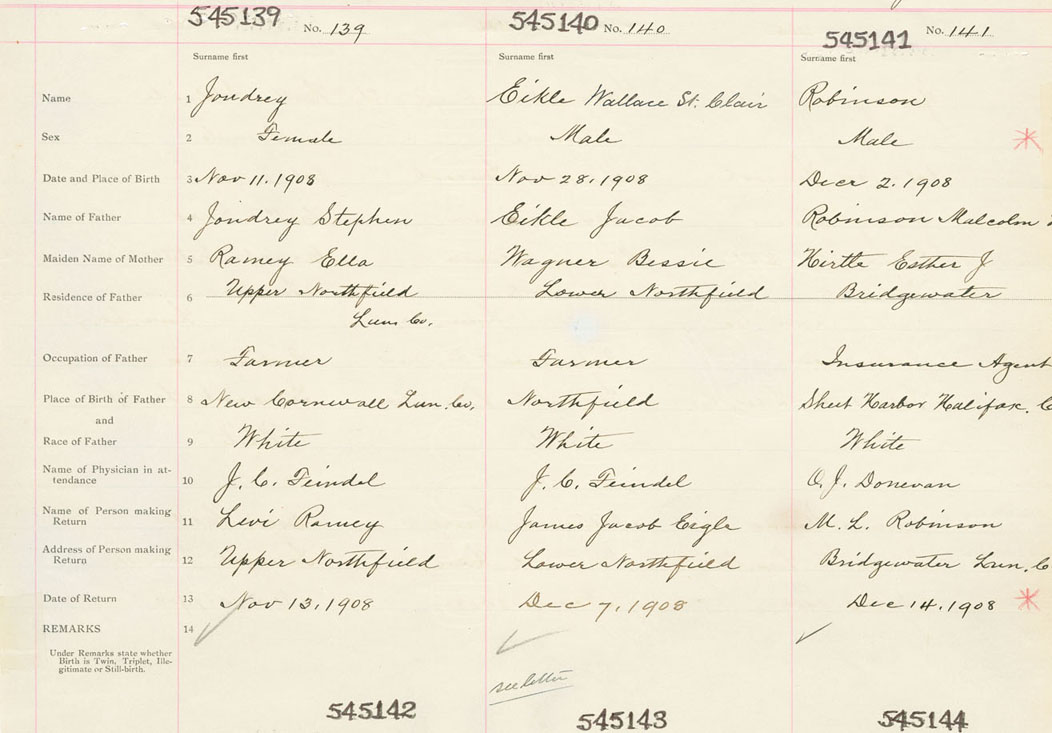 545139 No. 139 545140 No. 140 545141 No. 141
Surname first Surname first Surname first
Name 1 Joudrey Eikle Wallace St. Clair Robinson
Sex 2 Female Male Male
Date and Place of Birth 3 Nov 11. 1908 Nov 28. 1908 Decr 2. 1908
Name of Father 4 Joudrey Stephen Eikle Jacob Robinson Malcolm
Maiden Name of Mother 5 Ramey Ella Wagner Bessie Hirtle Esther J
Residence of Father 6 Upper Northfield Lower Northfield Bridgewater
Lun. Co.
Occupation of Father 7 Farmer Farmer Insurance Agent
Place of Birth of Father 8 New Cornwall Lun. Co. Northfield Sheet Harbor Halifax. C
and
Race of Father 9 White White White
Name of Physician in at-
tendance 10 J. C. Feindel J. C. Feindel O. J. Donevan
Name of Person making
Return 11 Levi Ramey James Jacob Eigle M. L. Robinson
Address of Person making
Return 12 Upper Northfield Lower Northfield Bridgewater Lun. C
Date of Return 13 Nov 13, 1908 Dec 7, 1908 Dec 14. 1908
REMARKS 14
Under Remarks state whether
Birth is Twin, Triplet, Ille-
gitimate or Still-birth.
see letter
545142 545143 545144